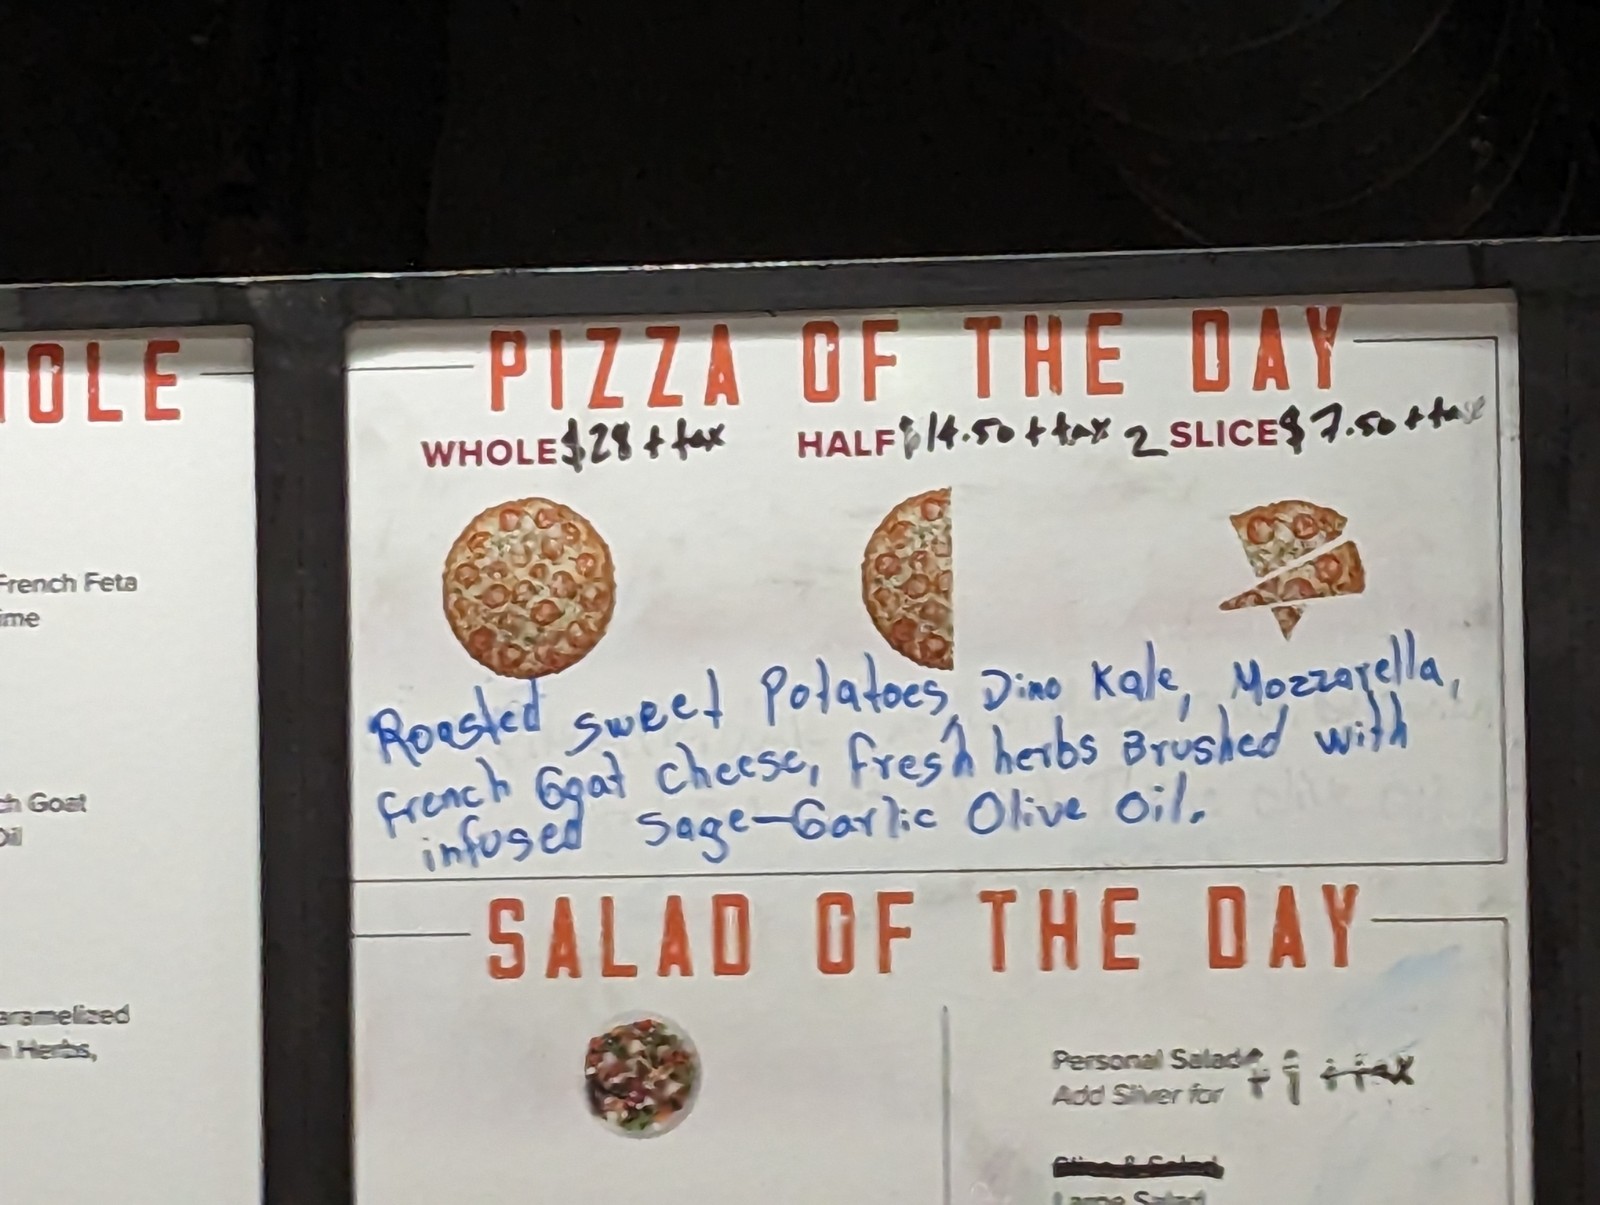 PIZZA OF THE DAY
WHOLE $28 + tax HALF $14.50 + tax 2 SLICE $7.50 + tax
Roasted sweet Potatoes, Dino Kale, Mozzarella,
French Goat cheese, fresh herbs Brushed with
infused Sage-Garlic Olive Oil.
SALAD OF THE DAY
Personal Salad
Add Sliver for
+ tax
Large Salad
French Feta
Goat
Oil
Herbs,